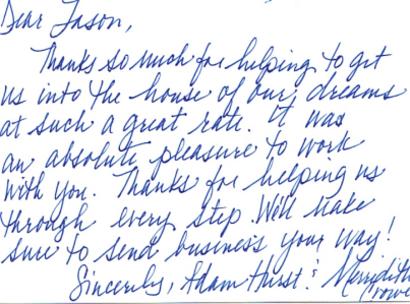 Dear Jason,
Thanks so much for helping to get
us into the house of our dreams
at such a great rate. It was
an absolute pleasure to work
with you. Thanks for helping us
through every step. We'll make
sure to send business your way!
Sincerely, Adam Hurst & Merridith